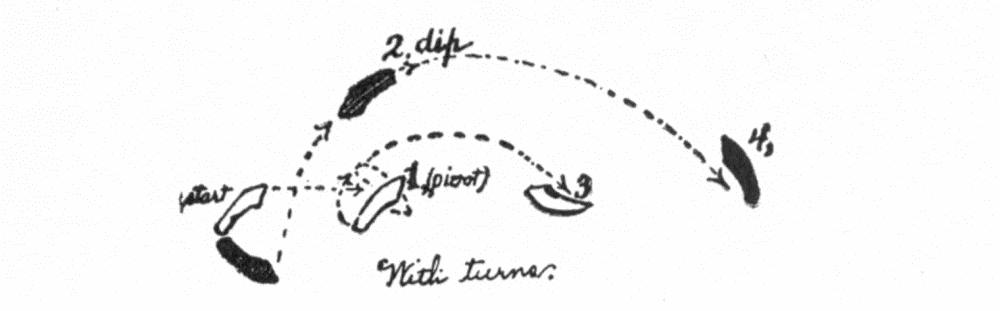 2. dip
4,
start
1 (pivot)
3
With turns.